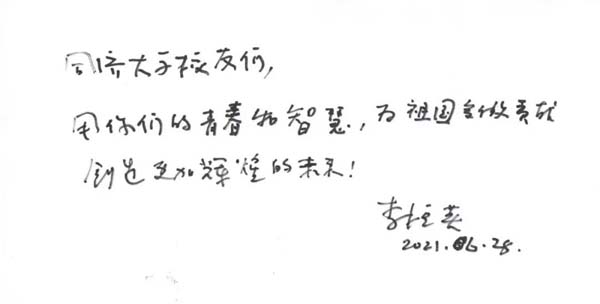 同济大学校友们,
用你们的青春和智慧,为祖国多做贡献
创造更加辉煌的未来!
2021.06.28.